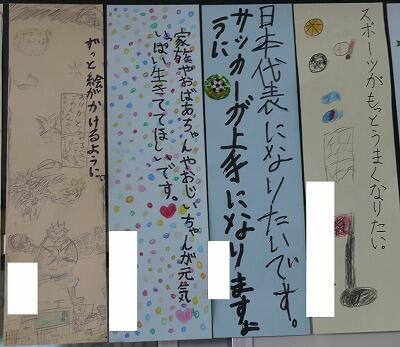 スポーツがもっとうまくなりたい。
日本代表になりたいです。
サッカーが上手になりますよ
うに
家族やおばあちゃんやおじいちゃんが元気
いっぱい生きててほしいです。
ずっと絵がかけるように。